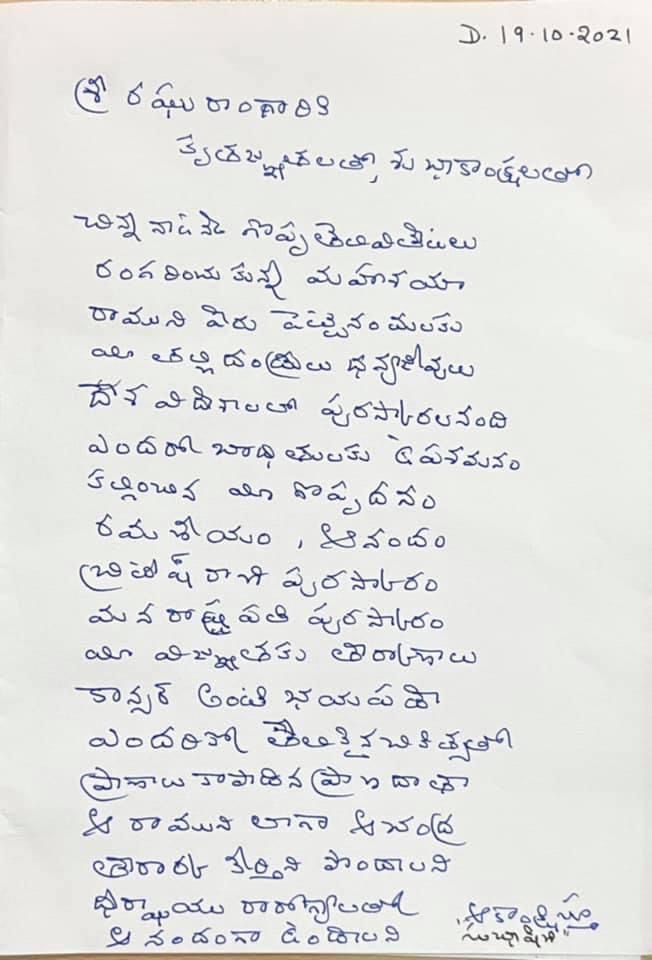 D. 19.10.2021
శ్రీ రఘు రాంగారికి
కృతజ్ఞతలతో, శుభాకాంక్షలతో
చిన్న నాడే గొప్ప తెలివితేటలు
రంగరించుకున్న మహాశయా
రాముని పేరు పెట్టైనందులకు
మీ తల్లి దండ్రులు ధన్యజీవులు
దేశ విదేశాలలో పురస్కారాలనంది
ఎందరో బాధితులకు ఉపశమనం
కల్గించిన మీ గొప్పదనం
రమణీయం, ఆనందం
బ్రిటీష్ రాణి పురస్కారం
మన రాష్ట్రపతి పురస్కారం
మీ విజ్ఞతకు తార్కాణాలు
కాన్సర్ అంటే భయపడే
ఎందరికో తేలికైన చికిత్సతో
ప్రాణాలు కాపాడిన ప్రాణ దాతా
ఆ రాముని లాగా ఆచంద్ర
తారార్క కీర్తిని పొందాలని
దీర్ఘాయు రారోగ్యాలతో
ఆనందంగా ఉండాలని
ఆకాంక్షిస్తూ
"సుభాషిణి"